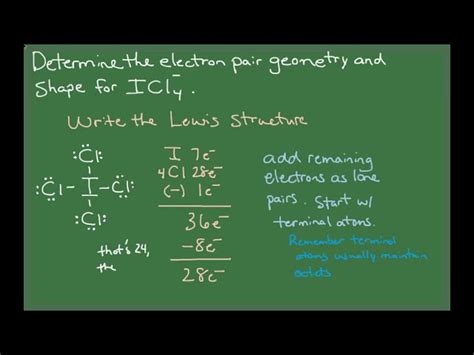 Determine the electron pair geometry and
Shape for ICl4-.
Write the Lewis Structure
:Cl:
:Cl-I-Cl:
:Cl:
I 7e-
4Cl 28e-
(-) 1e-
36e-
-8e-
28e-
that's 24,
the
add remaining
electrons as lone
pairs. Start w/
terminal atoms.
Remember terminal
atoms usually maintain
octets